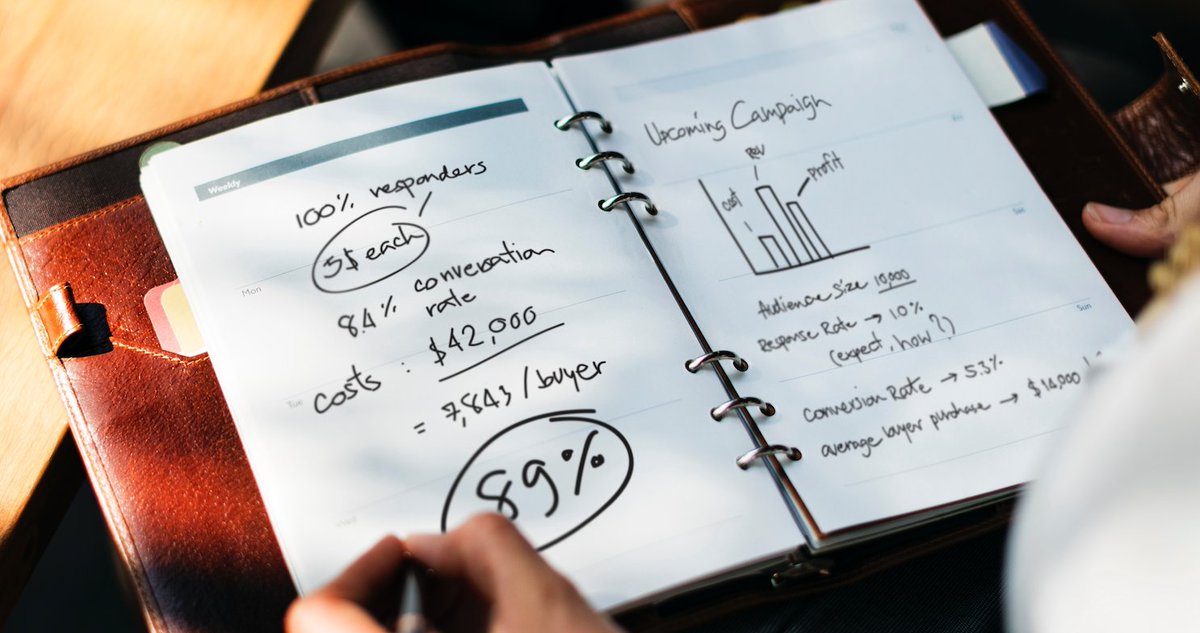 Weekly
100% responders
5$ each
Mon
8.4% conversation
rate
Tue
costs : $42,000
= 7,843 /buyer
89%
Upcoming Campaign
REV
cost
profit
Sat
Audience size 10,000
Response Rate → 10%
(expect, how?)
Sun
Conversion Rate → 5.3%
average buyer purchase → $14,000